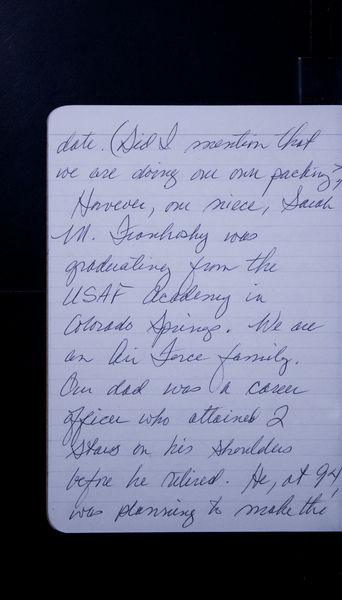 date. (Did I mention that
we are doing our own packing?)
However, our niece, Sarah
M. was
graduating from the
USAF Academy in
Colorado Springs. We are
an Air Force family.
Our dad was a career
officer who attained 2
stars on his shoulders
before he retired. He, at 94,
was planning to make the